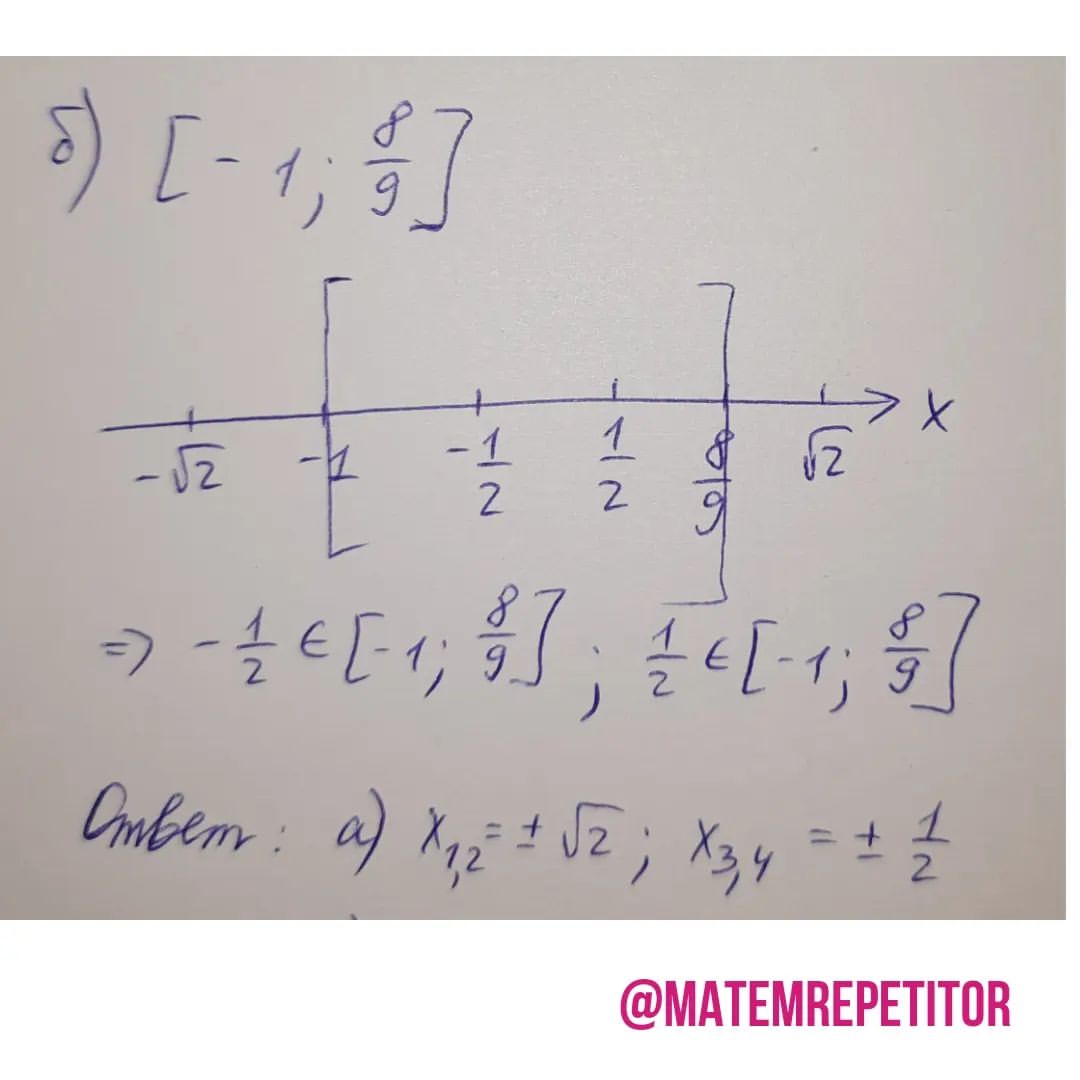 б) [-1; 8/9]
-√2 -1 -1/2 1/2 8/9 √2 x
=> -1/2 ∈ [-1; 8/9] ; 1/2 ∈ [-1; 8/9]
Ответ: а) x₁,₂ = ± √2; x₃,₄ = ± 1/2
@MATEMREPETITOR